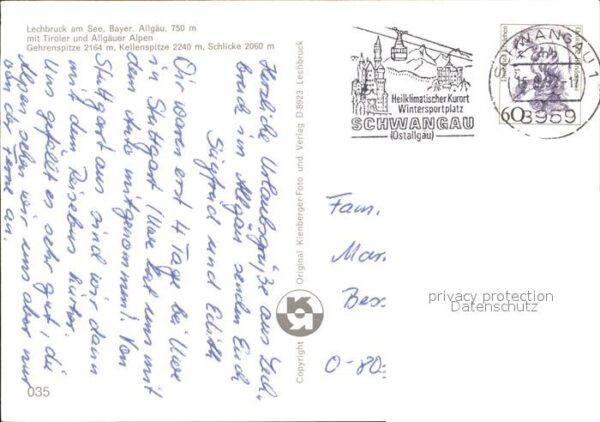 Lechbruck am See, Bayer. Allgäu, 750 m
mit Tiroler und Allgäuer Alpen
Gehrenspitze 2164 m, Kellenspitze 2240 m, Schlicke 2060 m
Herzliche Urlaubsgrüße aus Lech-
bruck im Allgäu senden Euch
Siegfried und Edith
Wir waren erst 4 Tage bei Uwe
in Stuttgart, Uwe hat uns mit
dem Auto mitgenommen. Von
Stuttgart aus sind wir dann
mit dem Reisebus weiter.
Uns gefällt es sehr gut, die
Alpen sehen wir uns aber nur
von der Ferne an.
035
Copyright
KV
Original Kienberger-Foto und Verlag D-8923 Lechbruck
Heilklimatischer Kurort
Wintersportplatz
SCHWANGAU
(Ostallgäu)
SCHWANGAU 1
8959
60
Fam.
Mar
Bess
O-80
privacy protection
Datenschutz